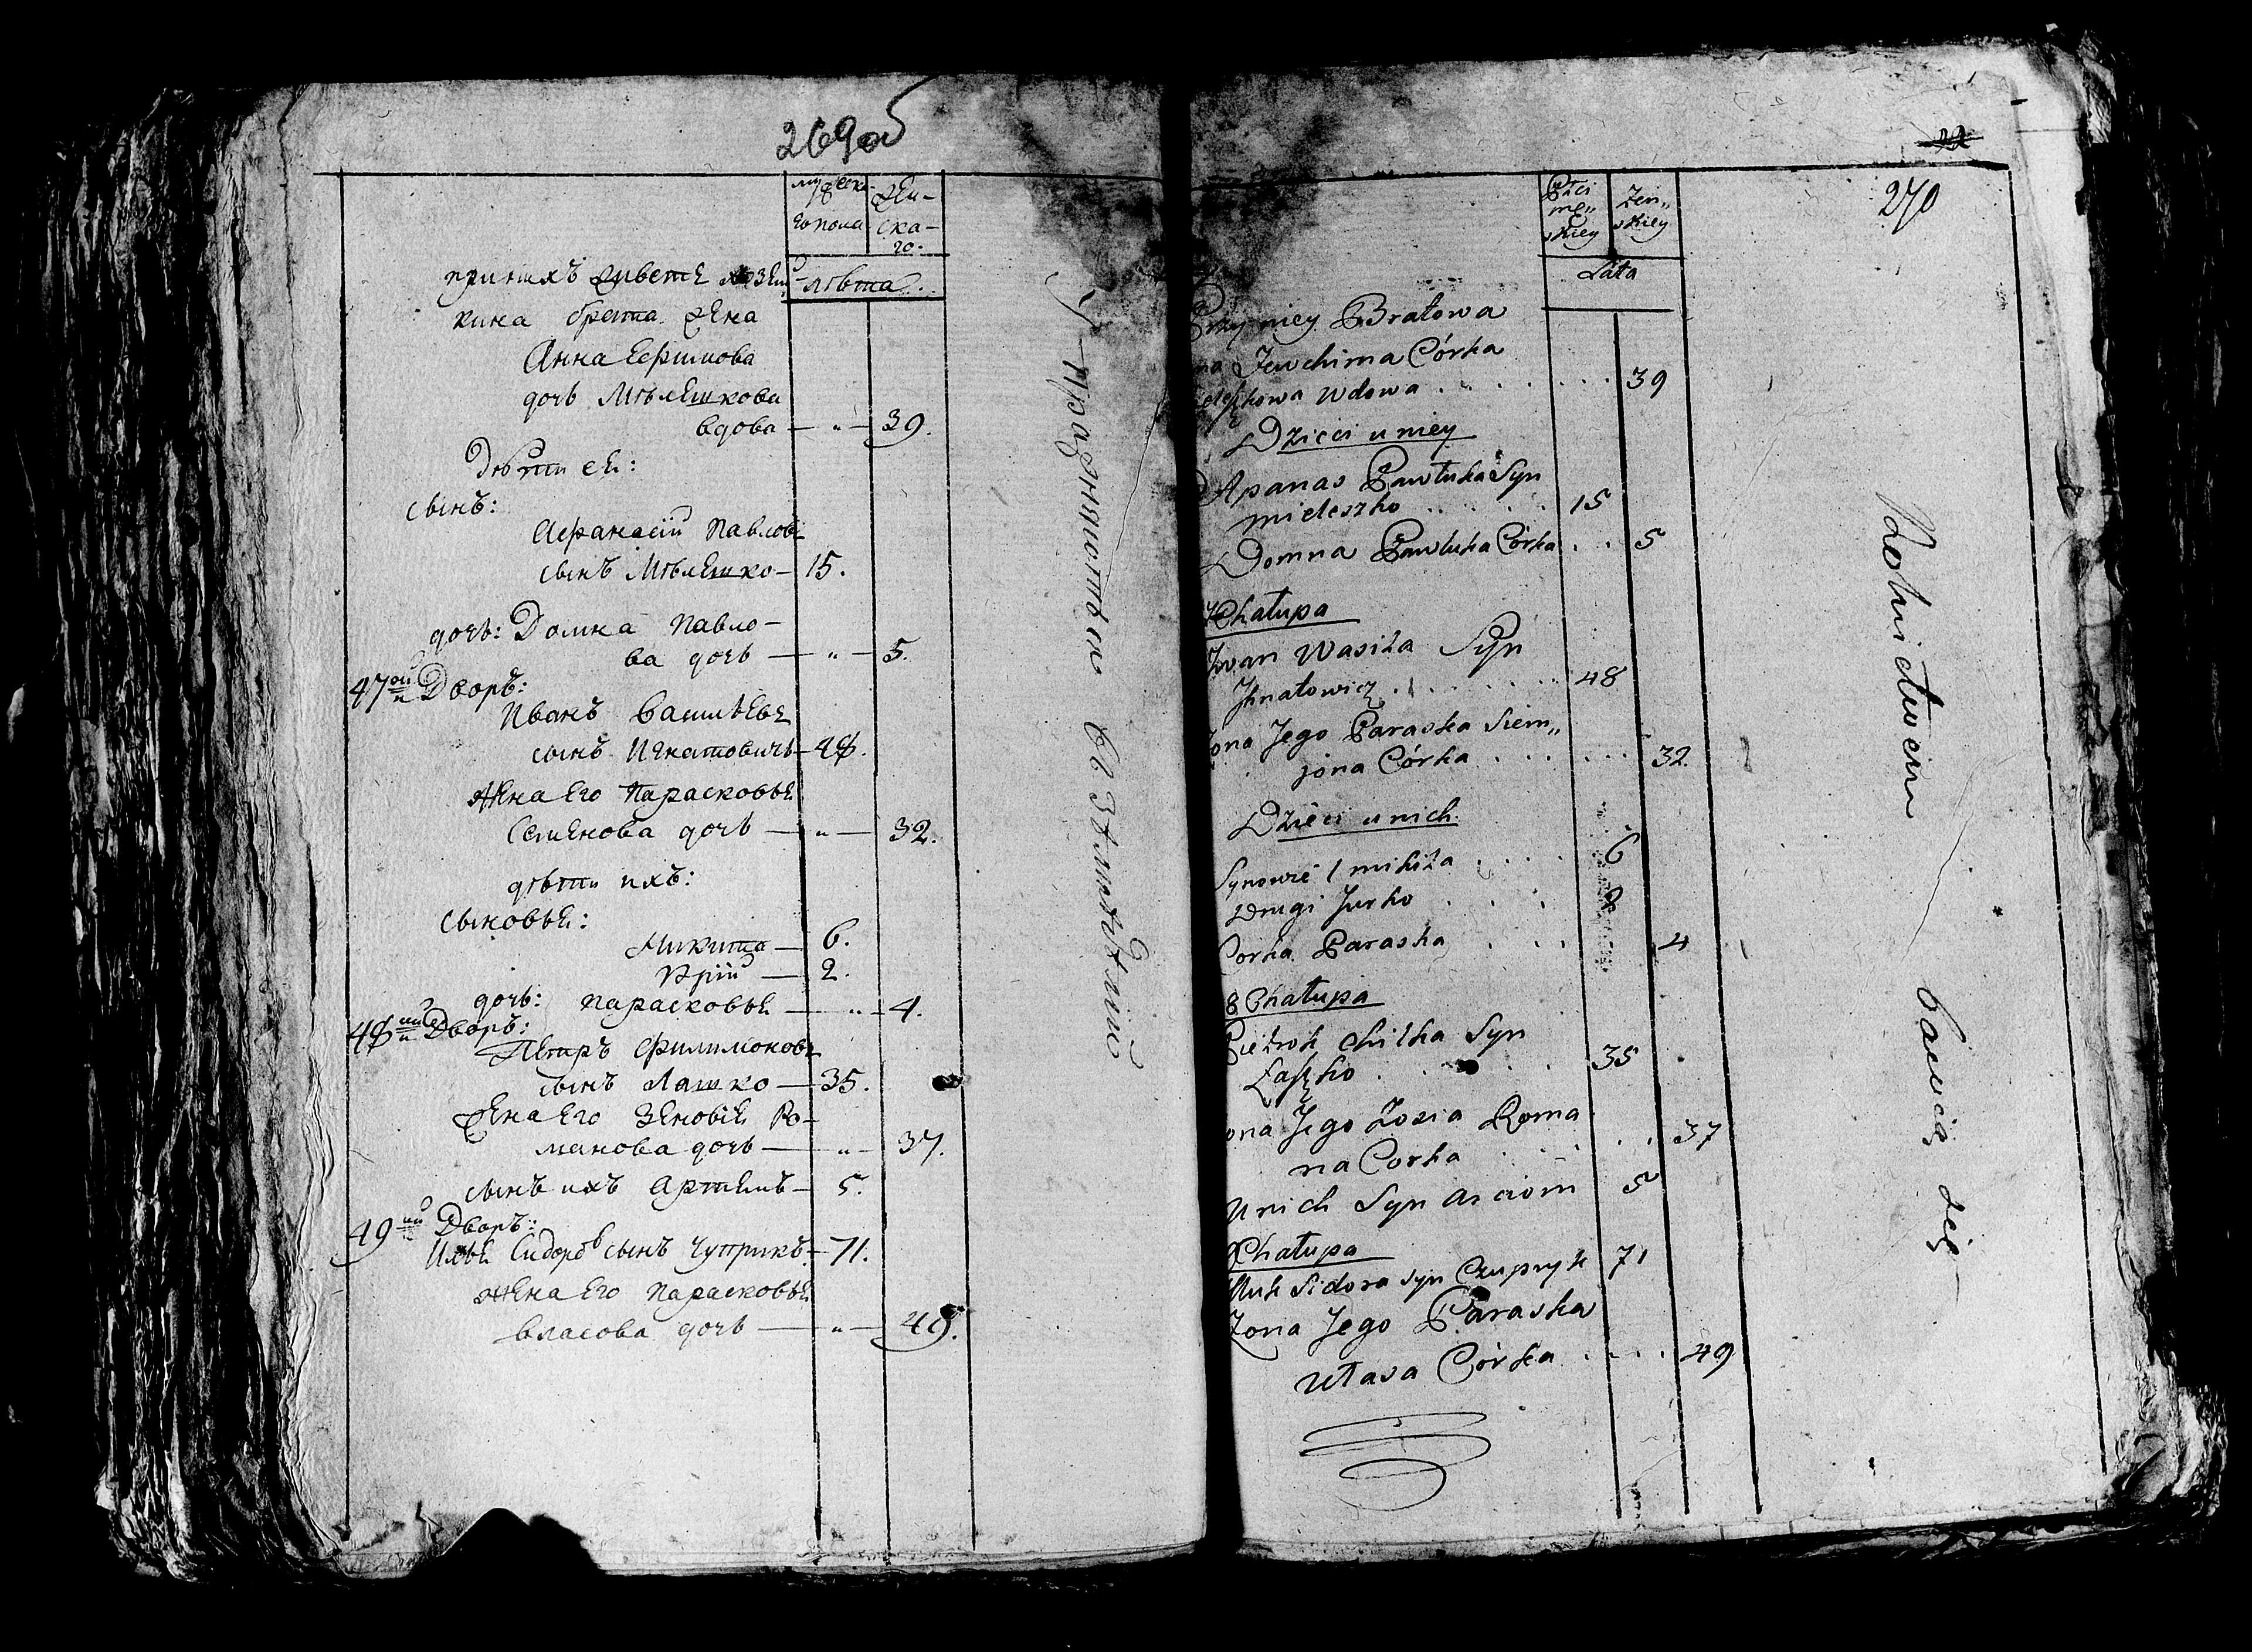 269об
мужеска-
го пола
жен-
ска-
го.
лѣта.
при нихъ живетъ хозяй-
кина брата жена
Анна Ефимова
дочь Мѣлешкова
вдова — „ — 39.
Дѣти ея:
сынъ:
Афанасій Павловъ
сынъ Мѣлешко — 15.
дочь: Домна Павло-
ва дочь — „ — 5.
47ой Дворъ:
Иванъ Васильевъ
сынъ Игнатовичъ — 48.
жена его Парасковья
Семенова дочь — „ — 32.
дѣти ихъ:
сыновья:
Микита — 6.
Юрій — 2.
дочь: Парасковья — „ — 4.
48ый Дворъ:
Петръ Филимоновъ
сынъ Лашко — 35.
жена его Зеновія Ро-
манова дочь — „ — 37.
сынъ ихъ Артемъ — 5.
49ый Дворъ:
Илья Сидоровъ сынъ Чуприкъ — 71.
жена его Парасковья
Власова дочь — „ — 49.
Упражняются въ Земледѣліи
22
270
Płci
mę„
skiey
żen„
skiey
Lata
Przy niey Bratowa
na Jewchima Córka
eleszkowa wdowa . . . . . 39
Dzieci u niey
Apanas Pawluka Syn
mieleszko . . . . 15
Domna Pawluka Córka . . 5
7 Chałupa
Iwan Wasila Syn
Ihnatowicz . . . . . 48
żona Jego Paraska Siem„
jona Córka . . . . . 32
Dzieci u nich
Synowie 1 mikita . . . . 6
Drugi Jurko . . . . 2
Corka Paraska . . . 4
8 Chałupa
Pietrok chilka Syn
Łaszko . . . . . 35
żona Jego Zosia Roma
na Corka . . . . . 37
u nich Syn Arciom 5
Chałupa
Iluk Sidora syn Czupryk 71
Żona Jego Paraska
Ułasa Córka . . . . 49
Rolnictwem bawią się